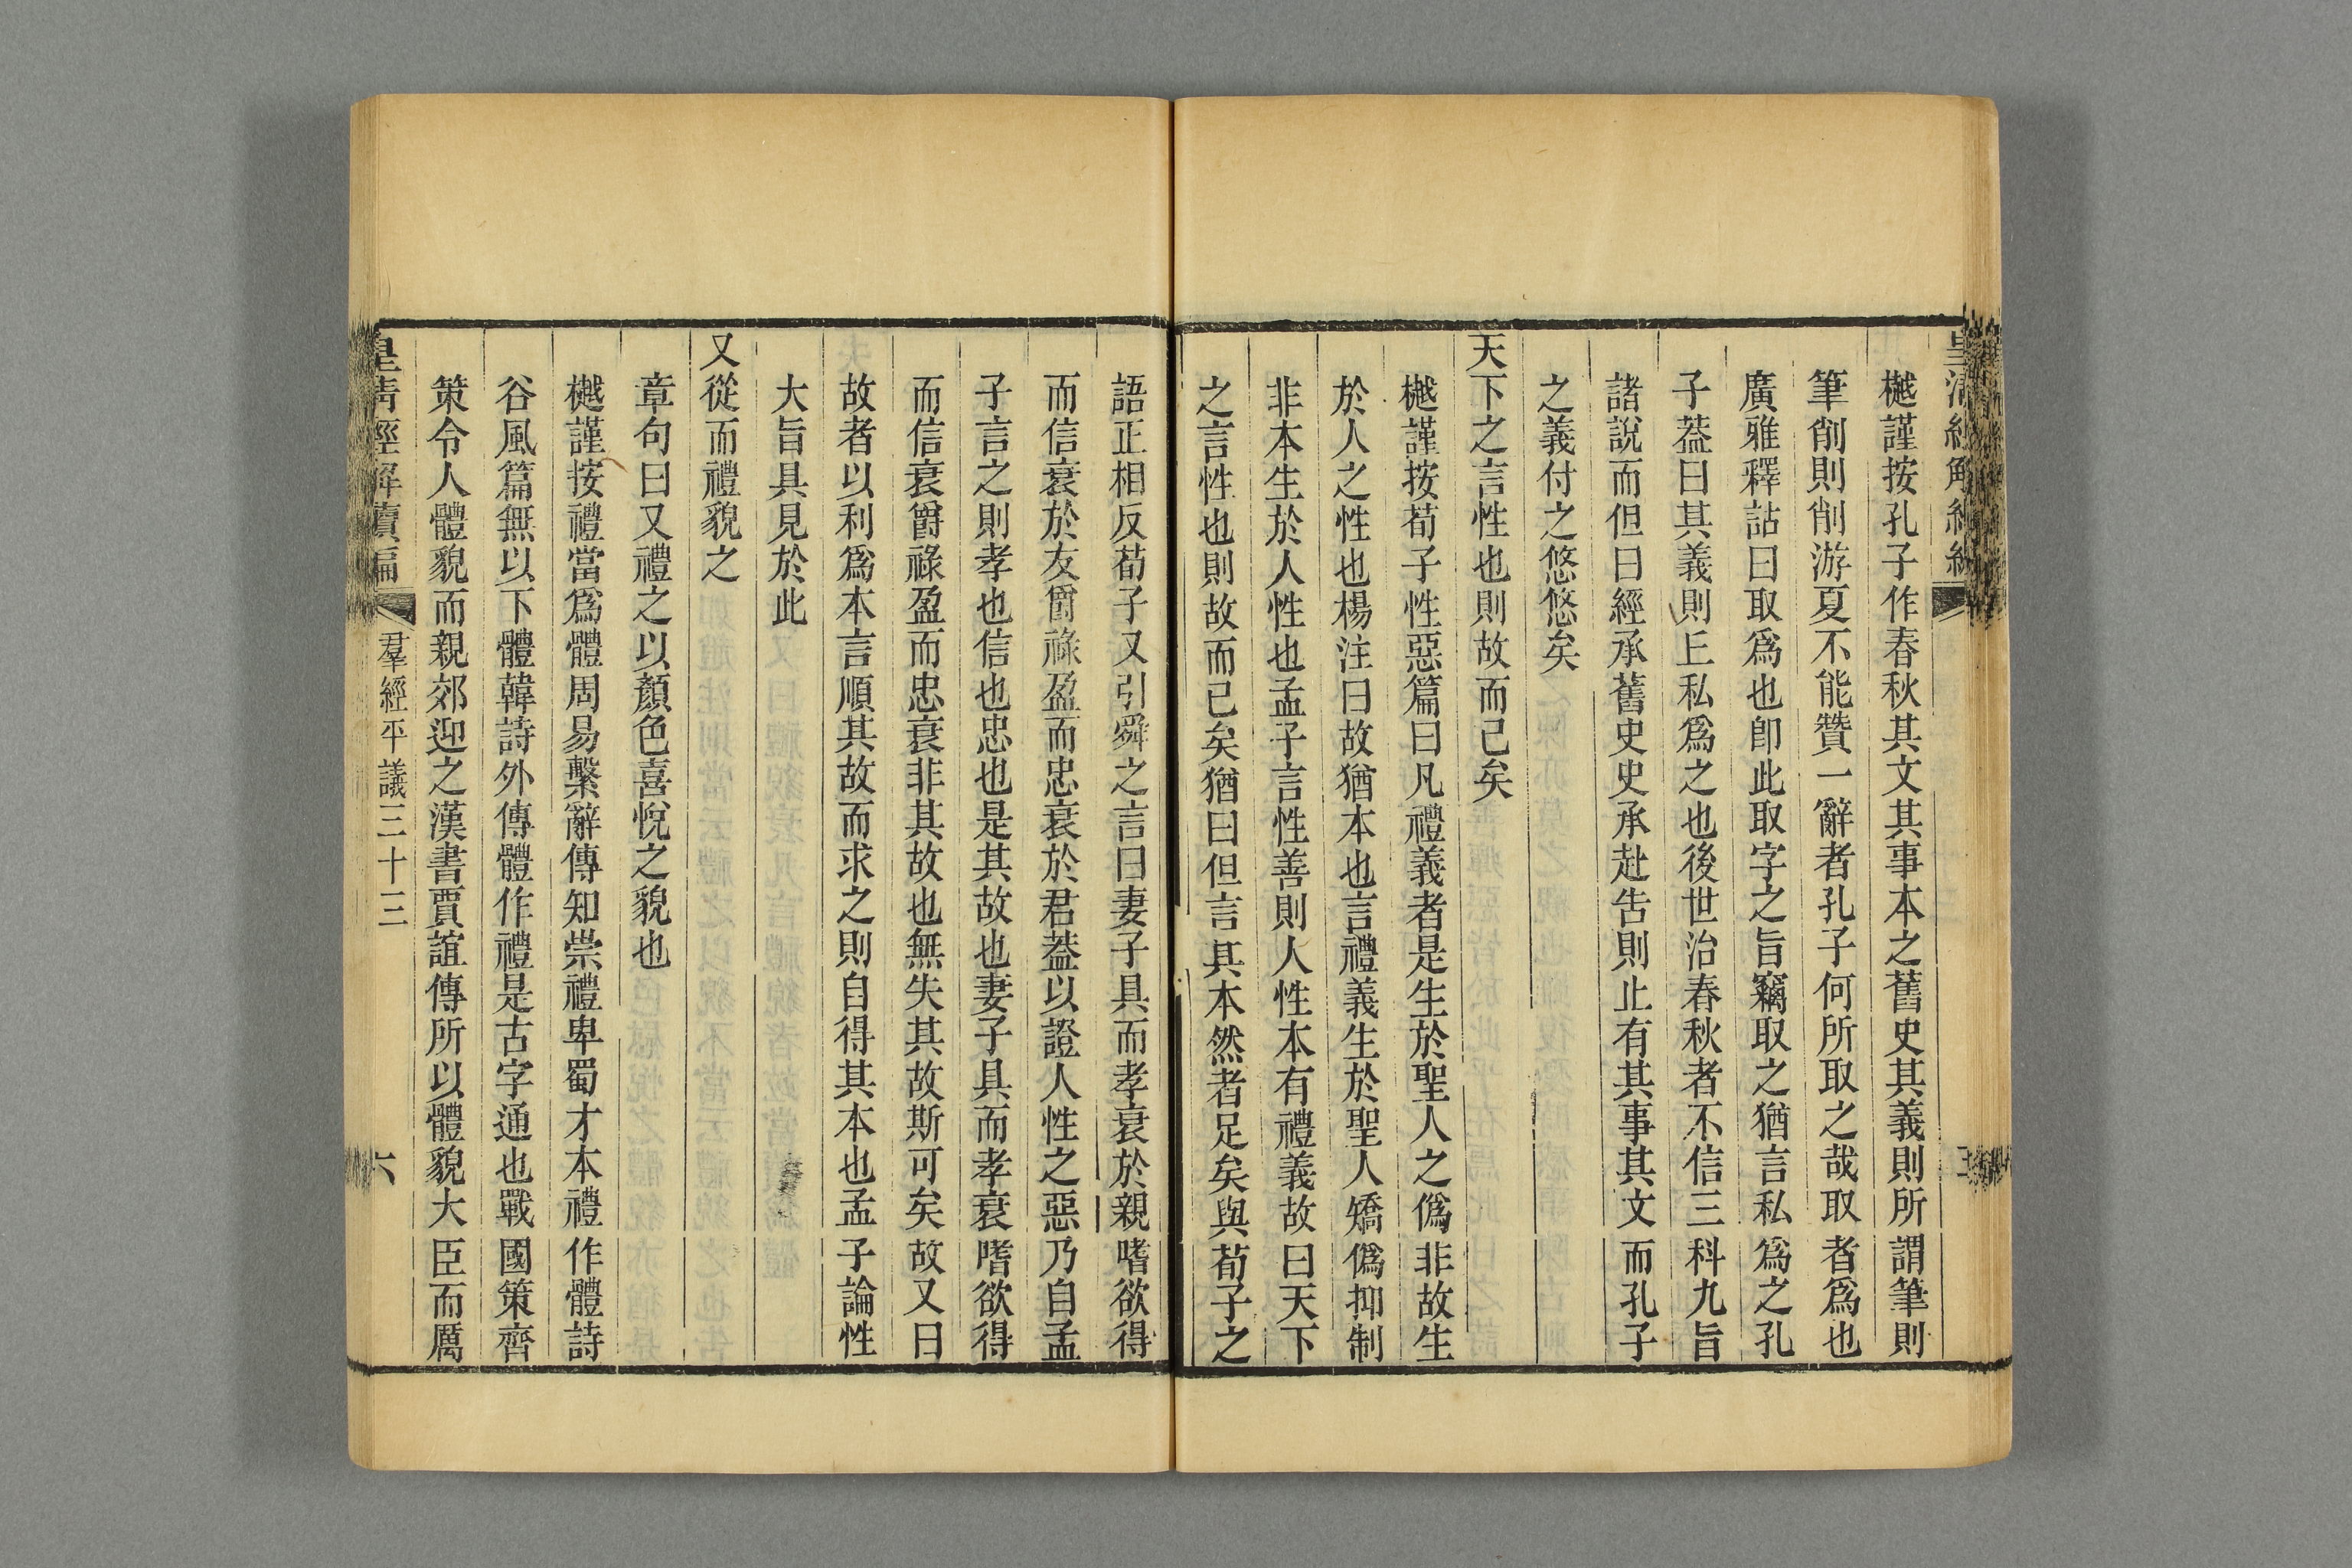 樾謹按孔子作春秋其文其事本之舊史其義則所謂筆則
筆削則削游夏不能贊一辭者孔子何所取之哉取者爲也
廣雅釋詁曰取爲也卽此取字之旨竊取之猶言私爲之孔
子葢曰其義則𠀉私爲之也後世治春秋者不信三科九旨
諸說而但曰經承舊史史承赴告則止有其事其文而孔子
之義付之悠悠矣
天下之言性也則故而已矣
樾謹按荀子性惡篇曰凡禮義者是生於聖人之僞非故生
於人之性也楊注曰故猶本也言禮義生於聖人矯僞抑制
非本生於人性也孟子言性善則人性本有禮義故曰天下
之言性也則故而已矣猶曰但言其本然者足矣與荀子之
語正相反荀子又引舜之言曰妻子具而孝衰於親嗜欲得
而信衰於友爵祿盈而忠衰於君葢以證人性之惡乃自孟
子言之則孝也信也忠也是其故也妻子具而孝衰嗜欲得
而信衰爵祿盈而忠衰非其故也無失其故斯可矣故又曰
故者以利爲本言順其故而求之則自得其本也孟子論性
大旨具見於此
又從而禮貌之
章句曰又禮之以顏色喜悅之貌也
樾謹按禮當爲體周易繫辭傳知崇禮卑蜀才本禮作體詩
谷風篇無以下體韓詩外傳體作禮是古字通也戰國策齊
策令人體貌而親郊迎之漢書賈誼傳所以體貌大臣而厲
皇清經解續編
羣經平議三十三
六